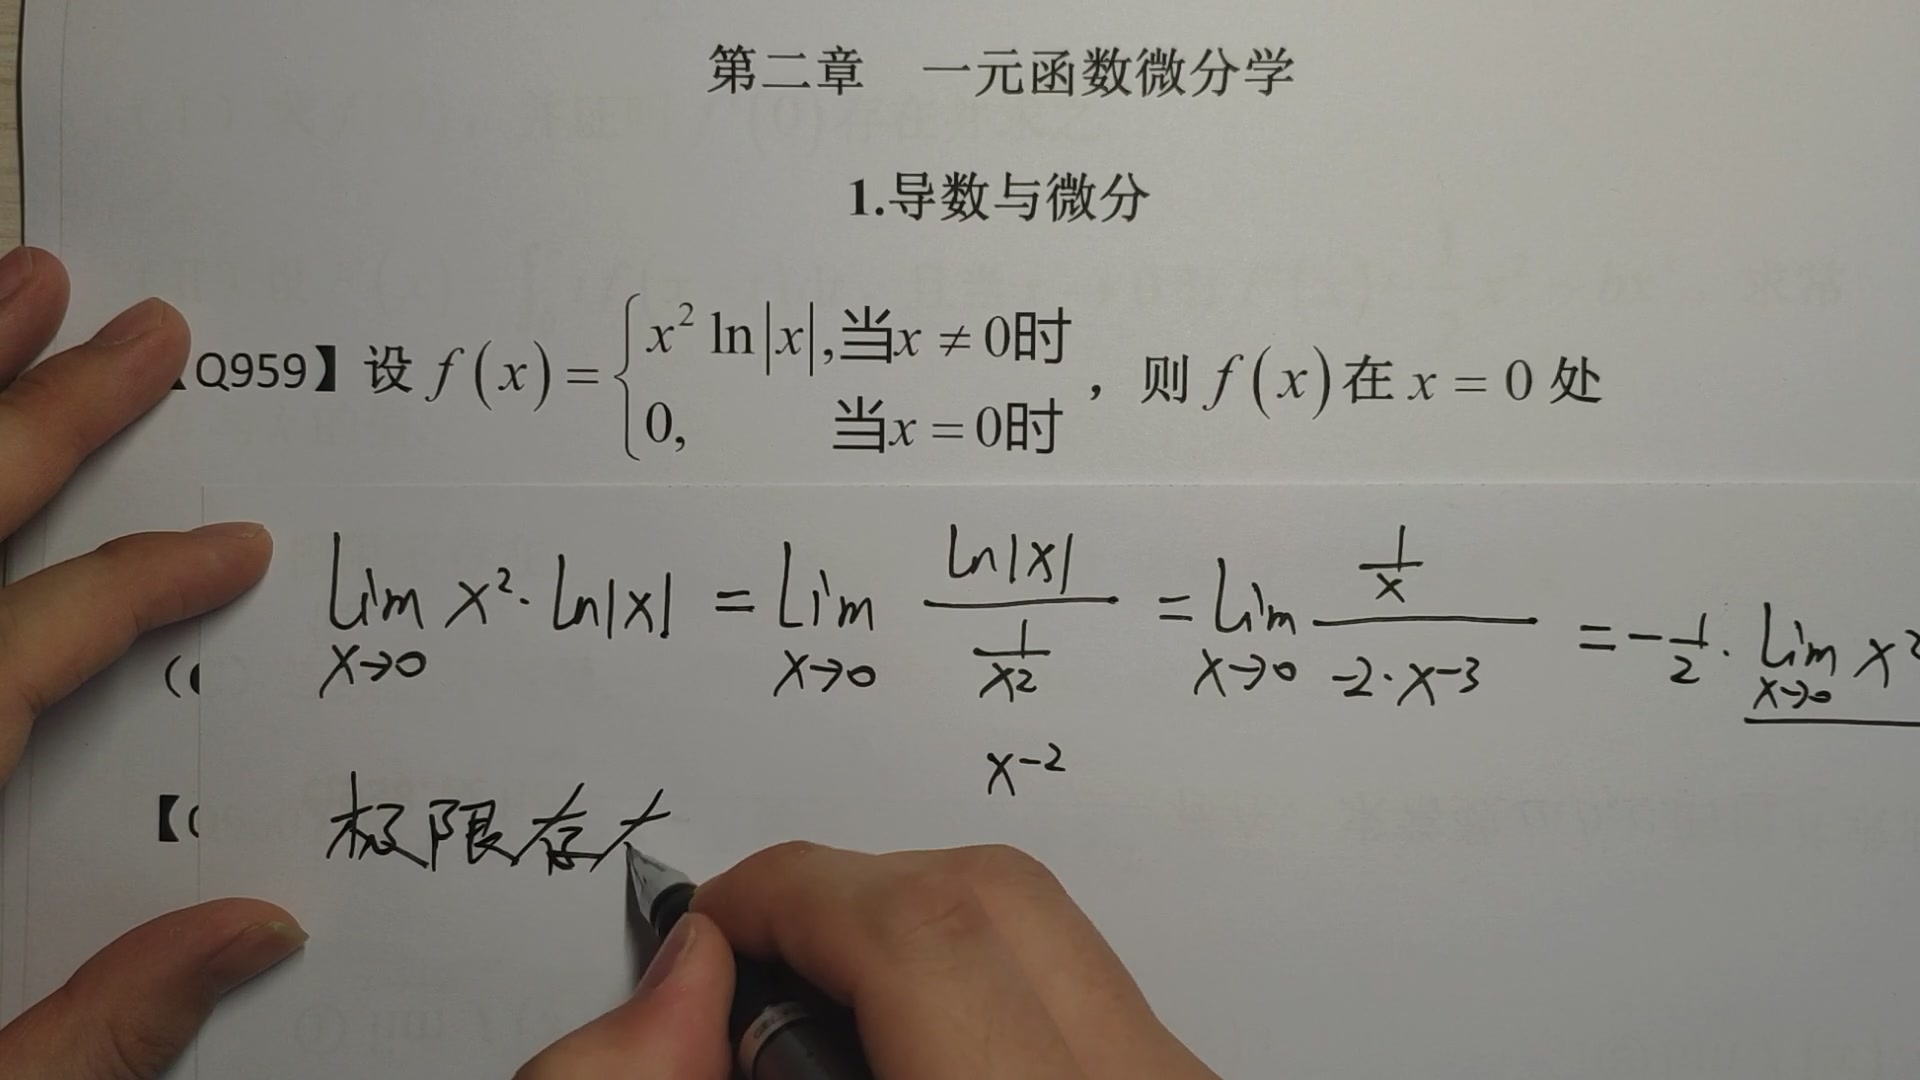 第二章 一元函数微分学
1.导数与微分
Q959】设 f(x) = { x² ln|x|, 当x ≠ 0时
0, 当x = 0时 , 则 f(x) 在 x = 0 处
lim x→0 x²·ln|x| = lim x→0 ln|x| / (1/x²) = lim x→0 (1/x) / (-2·x-3) = -1/2 · lim x→0 x²
x-2
(
【
极限存